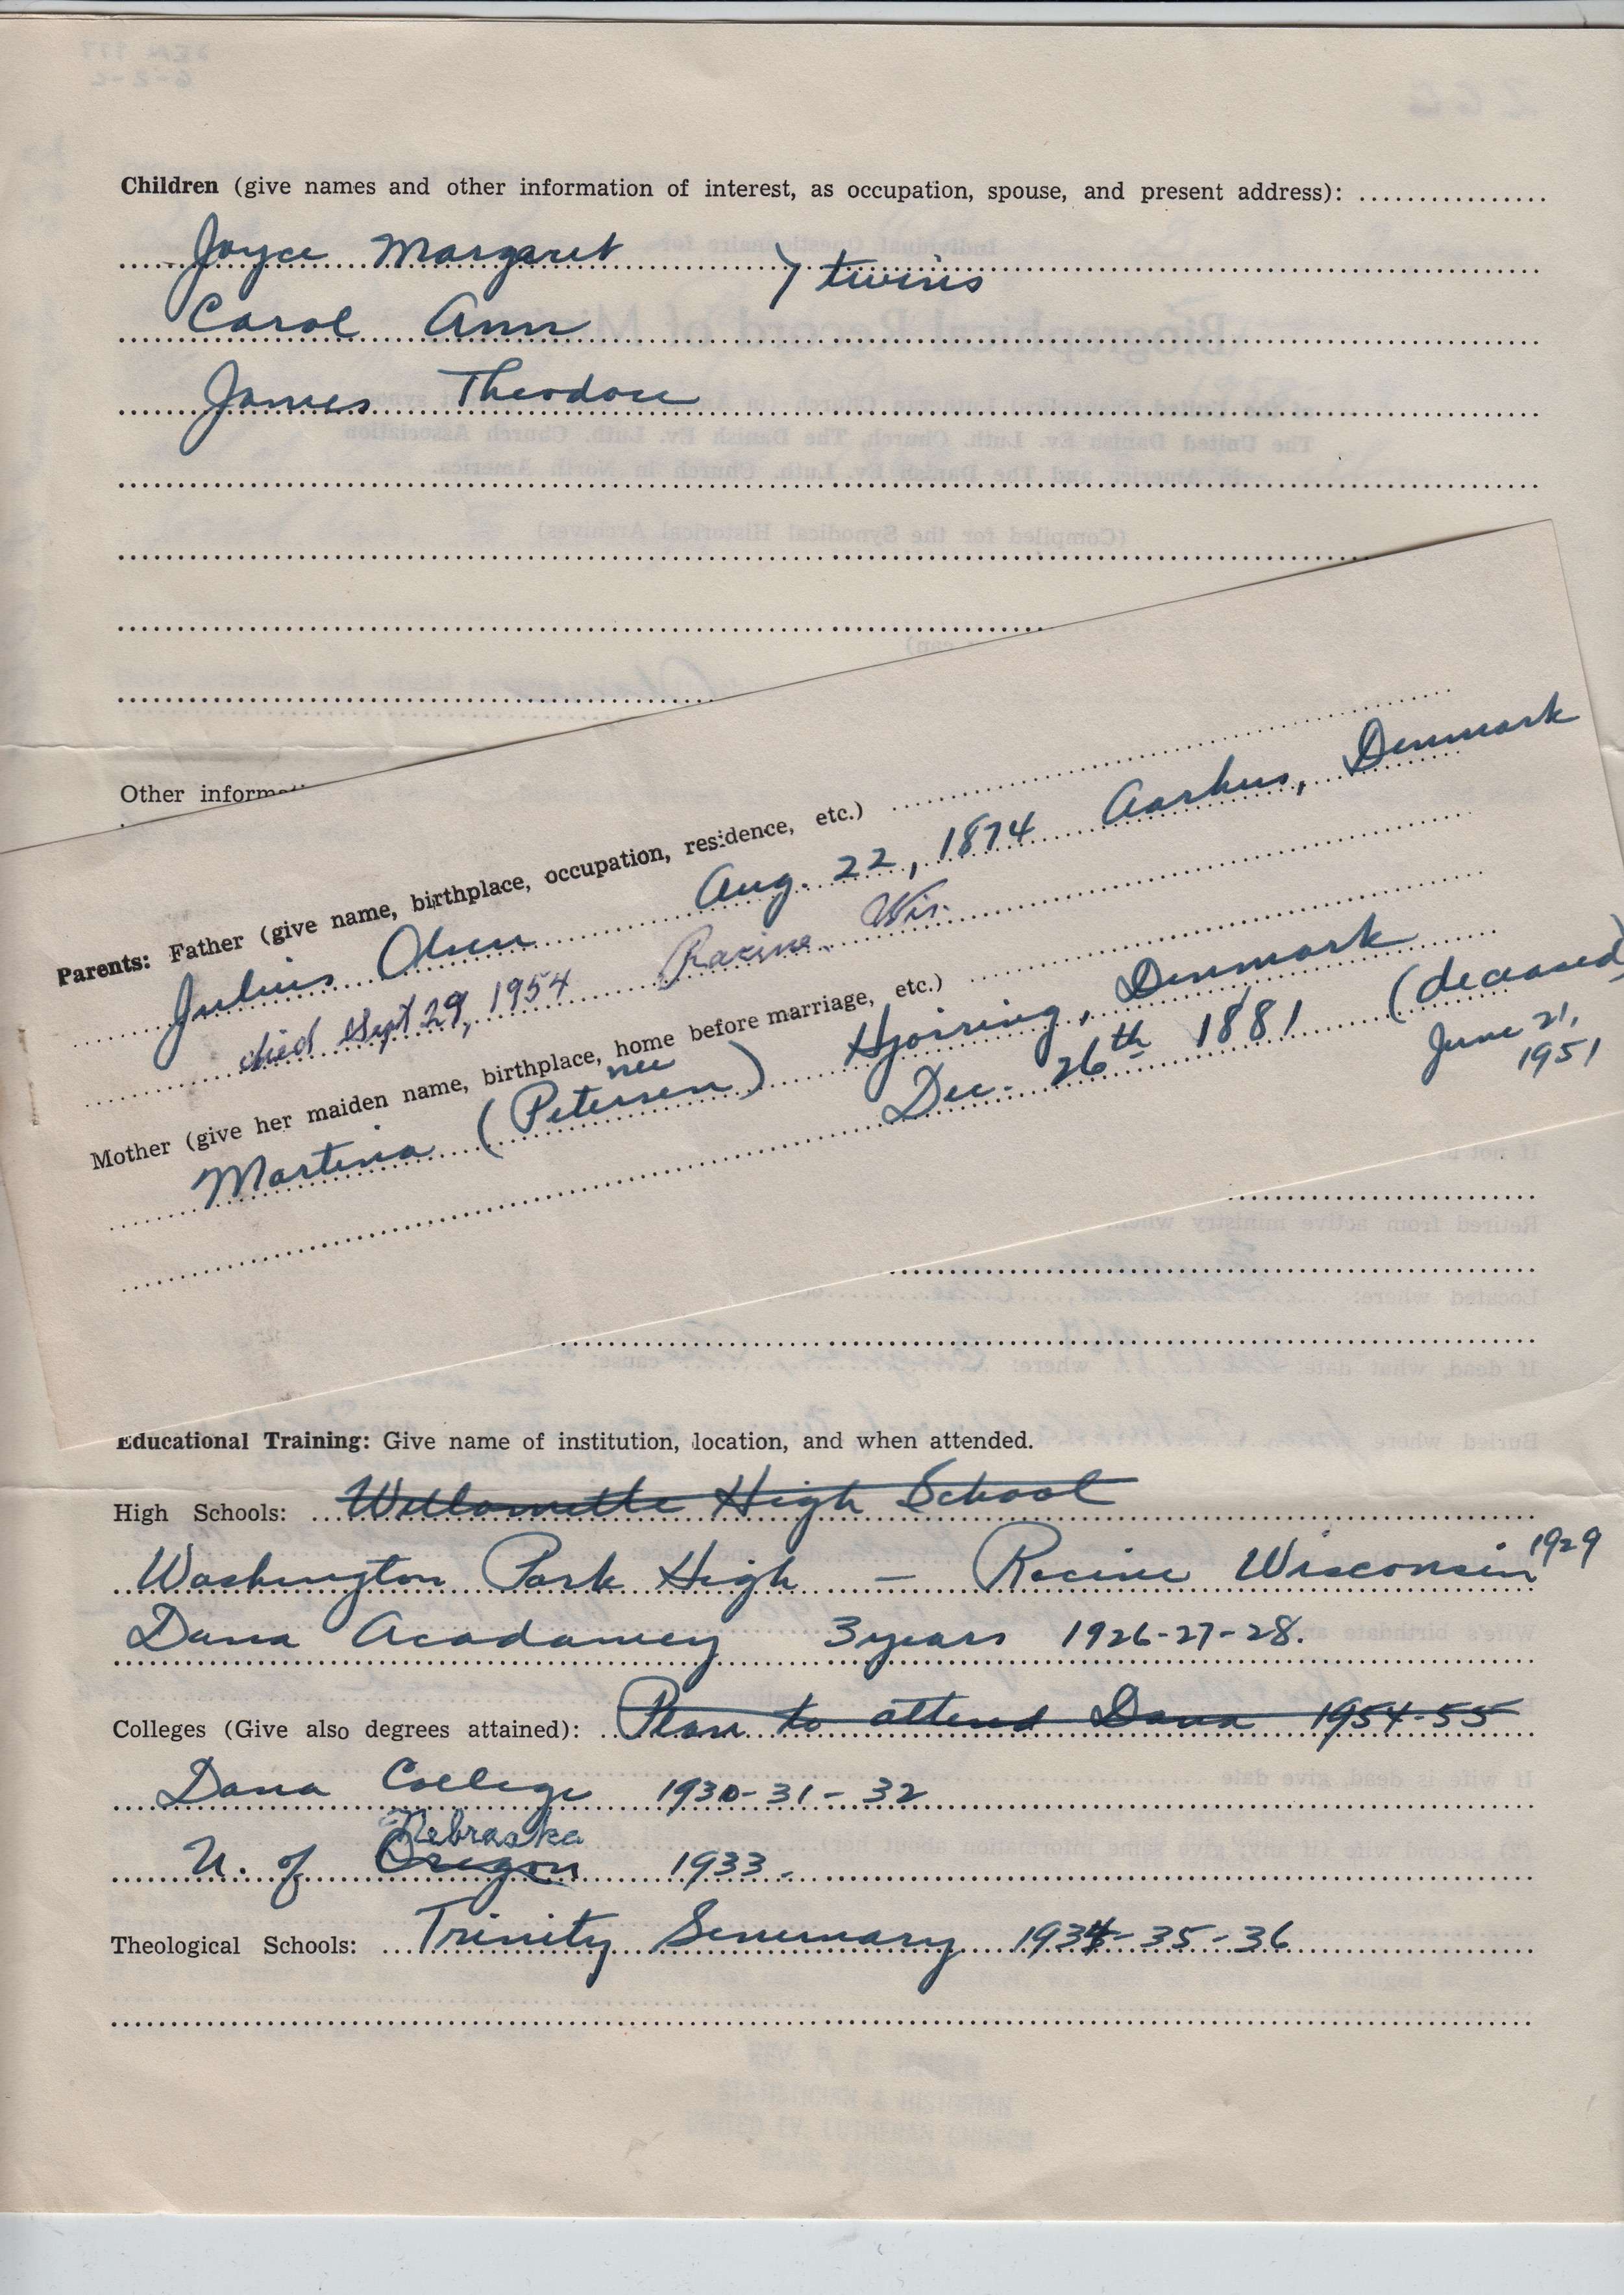 Children (give names and other information of interest, as occupation, spouse, and present address):
Joyce Margaret } twins
Carol Ann
James Theodore
Other informa
Parents: Father (give name, birthplace, occupation, residence, etc.)
Julius Olsen Aug. 22, 1874 Aarhus, Denmark
died Sept 29, 1954 Racine Wis.
Mother (give her maiden name, birthplace, home before marriage, etc.)
nee
Martina (Petersen) Hjorring, Denmark
Dec. 26th 1881 (deceased)
June 21,
1951
Educational Training: Give name of institution, location, and when attended.
High Schools: Willamette High School
Washington Park High - Racine Wisconsin 1929
Dana Acadamey 3 years 1926-27-28.
Colleges (Give also degrees attained): Plan to attend Dana 1954-55
Dana College 1930-31-32
Nebraska
U. of Oregon 1933.
Theological Schools: Trinity Semmary 1934-35-36